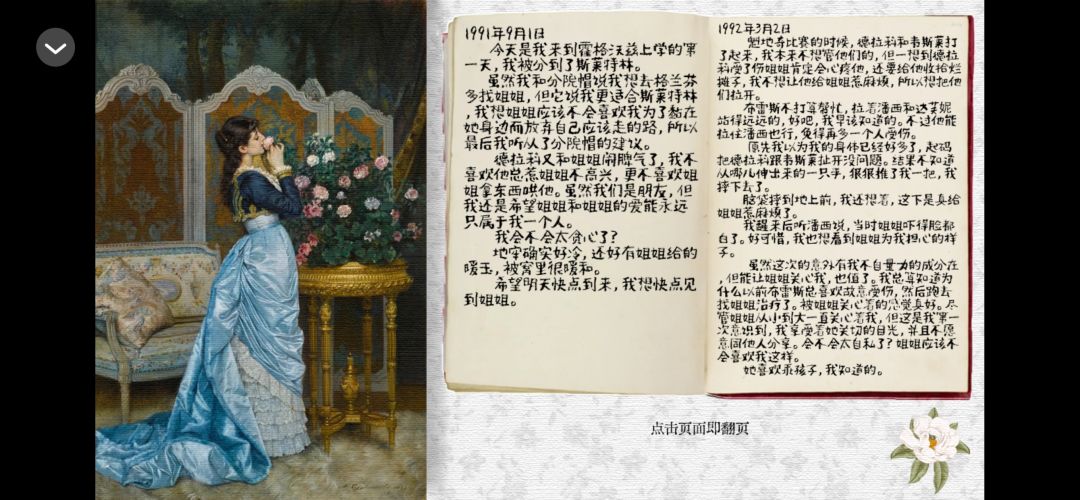 1991年9月1日
今天是我来到霍格沃兹上学的第
一天，我被分到了斯莱特林。
虽然我和分院帽说我想去格兰芬
多找姐姐，但它说我更适合斯莱特林
，我想姐姐应该不会喜欢我为了黏在
她身边而放弃自己应该走的路，所以
最后我听从了分院帽的建议。
德拉科又和姐姐闹脾气了，我不
喜欢他总惹姐姐不高兴，更不喜欢姐
姐拿东西哄他。虽然我们是朋友，但
我还是希望姐姐和姐姐的爱能永远
只属于我一个人。
我会不会太贪心了？
地牢确实好冷，还好有姐姐给的
暖玉，被窝里很暖和。
希望明天快点到来，我想快点见
到姐姐。
1992年3月2日
魁地奇比赛的时候，德拉科和韦斯莱打
了起来，我本来不想管他们的，但一想到德拉
科受了伤姐姐肯定会心疼他，还要给他收拾烂
摊子，我不想让他给姐姐惹麻烦，所以想把他
们拉开。
布雷斯不打算帮忙，拉着潘西和达芙妮
站得远远的，好吧，我早该知道的。不过他能
拉住潘西也行，免得再多一个人受伤。
原先我以为我的身体已经好多了，起码
把德拉科跟韦斯莱扯开没问题。结果不知道
从哪儿伸出来的一只手，狠狠推了我一把，我
摔下去了。
脑袋摔到地上前，我还想着，这下是真给
姐姐惹麻烦了。
我醒来后听潘西说，当时姐姐吓得脸都
白了。好可惜，我也想看到姐姐为我担心的样
子。
虽然这次的意外有我不自量力的成分在
，但能让姐姐关心我，也值了。我总算知道为
什么以前布雷斯总喜欢故意受伤，然后跑去
找姐姐治疗了。被姐姐关心着的感觉真好。尽
管姐姐从小到大一直关心着我，但这是我第一
次意识到，我享受着她关切的目光，并且不愿
意同他人分享。会不会太自私了？姐姐应该不
会喜欢我这样。
她喜欢乖孩子，我知道的。
点击页面即翻页